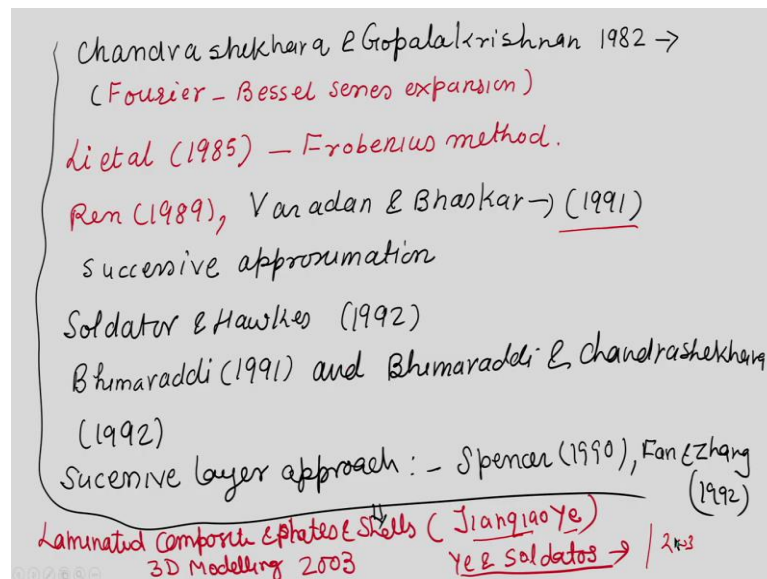 Chandrashekhara & Gopalakrishnan 1982 →
(Fourier - Bessel series expansion)
Li et al (1985) - Frobenius method.
Ren (1989), Varadan & Bhaskar → (1991)
successive approximation
Soldator & Hawkes (1992)
Bhimaraddi (1991) and Bhimaraddi & Chandrashekhara
(1992)
Sucessive layer approach : - Spencer (1990), Fan & Zhang
(1992)
Laminated Composite & plates & Shells (Jianqiao Ye)
3D Modelling 2003 Ye & Soldatos → / 2003